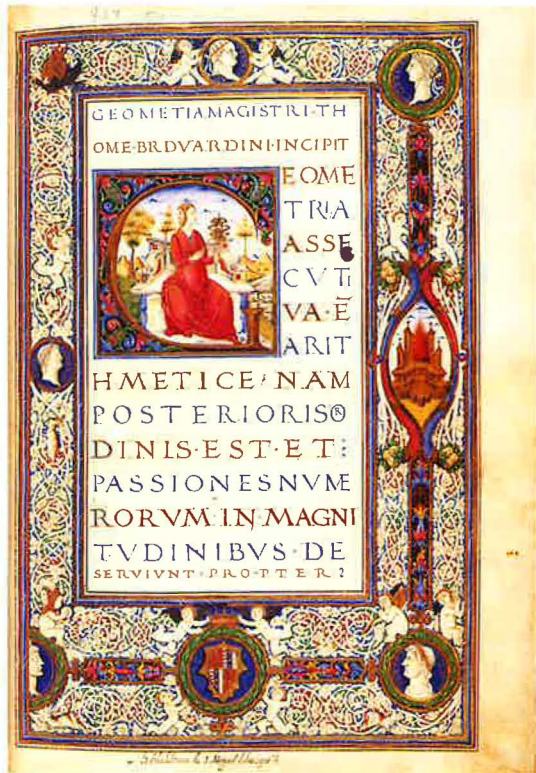 GEOMETIAMAGISTRI·TH
OME·BRDVARDINI·INCIPIT
GEOME
TRIA
ASSE
CVTI
VA·Ē
ARIT
HMETICE·NAM
POSTERIORIS
DINIS·EST·ET:
PASSIONESNVME
RORVM·IN·MAGNI
TVDINIBVS·DE
SERVIVNT·PROPTER